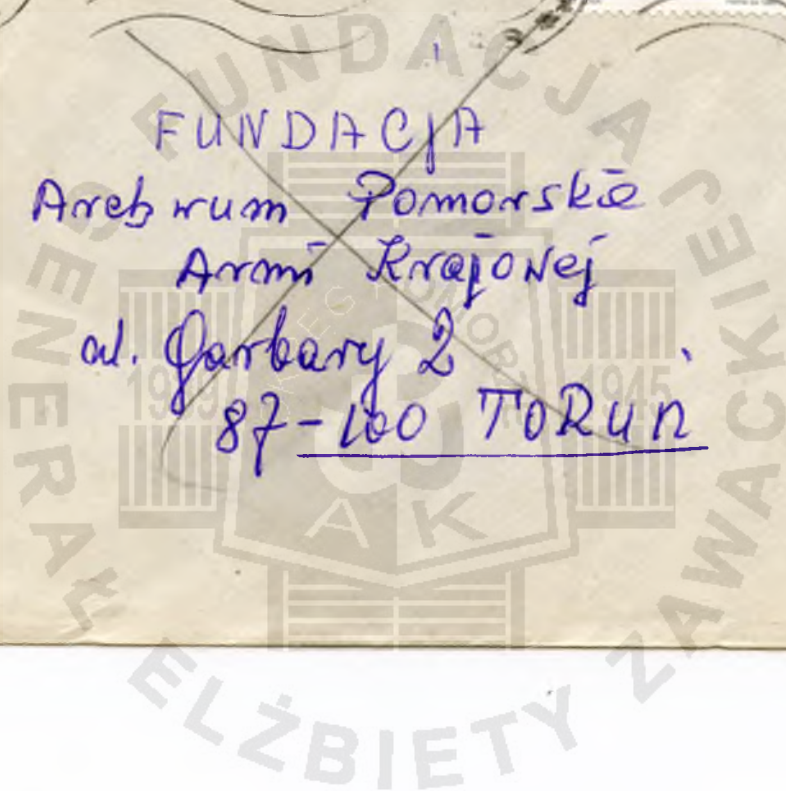 FUNDACJA
Archiwum Pomorskie
Armi Krajowej
ul. Garbary 2
87-100 TORUŃ
FUNDACJA GENERAŁ ELŻBIETY ZAWACKIEJ
OKRĘG POMORZE
1939 1945
AK